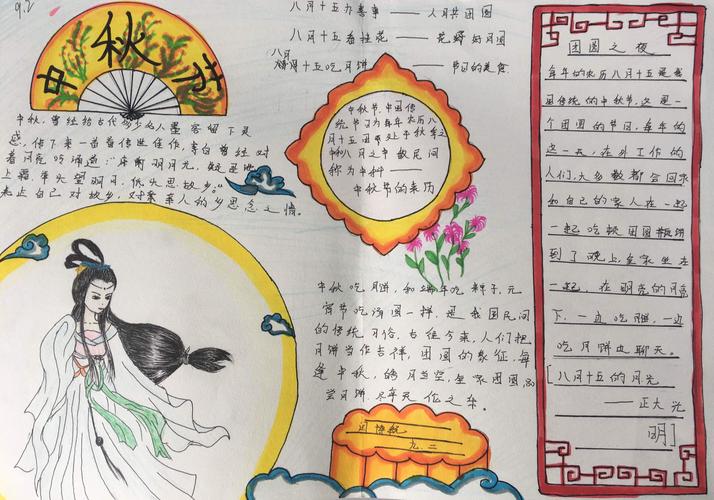 9.2
中秋节
八月十五办喜事——人月共团圆
八月十五看桂花——花好月圆
八月
十五吃月饼——节日的美食
中秋,曾经给古代多少文人墨客留下灵
感,传下来一首首传世佳作,李白曾经对
着月亮吟诵道:"床前明月光,疑是地
上霜,举头望明月,低头思故乡。"
来点自己对故乡,对亲人的乡思念之情。
中秋节,中国传
统节
月十五
中秋
称为中秋——
中秋节的来历
中秋吃月饼,和端午吃粽子,元
宵节吃汤圆一样,是我国民间
的传统习俗,古往今来,人们把
月饼当作吉祥,团圆的象征,每
逢中秋,皓月当空,全家团圆,品
尝月饼,尽享天伦之乐。
九.二
团圆之夜
每年的农历八月十五是我
国传统的中秋节,这是一
个团圆的节日,每年的
这一天,在外工作的
人们,大多数都会回家
和自己的家人在一起
一起吃顿团圆
到了晚上,全家坐在
一起,在明亮的月亮
下,一边吃
吃月饼边聊天。
[八月十五的月光
——正大光
明]